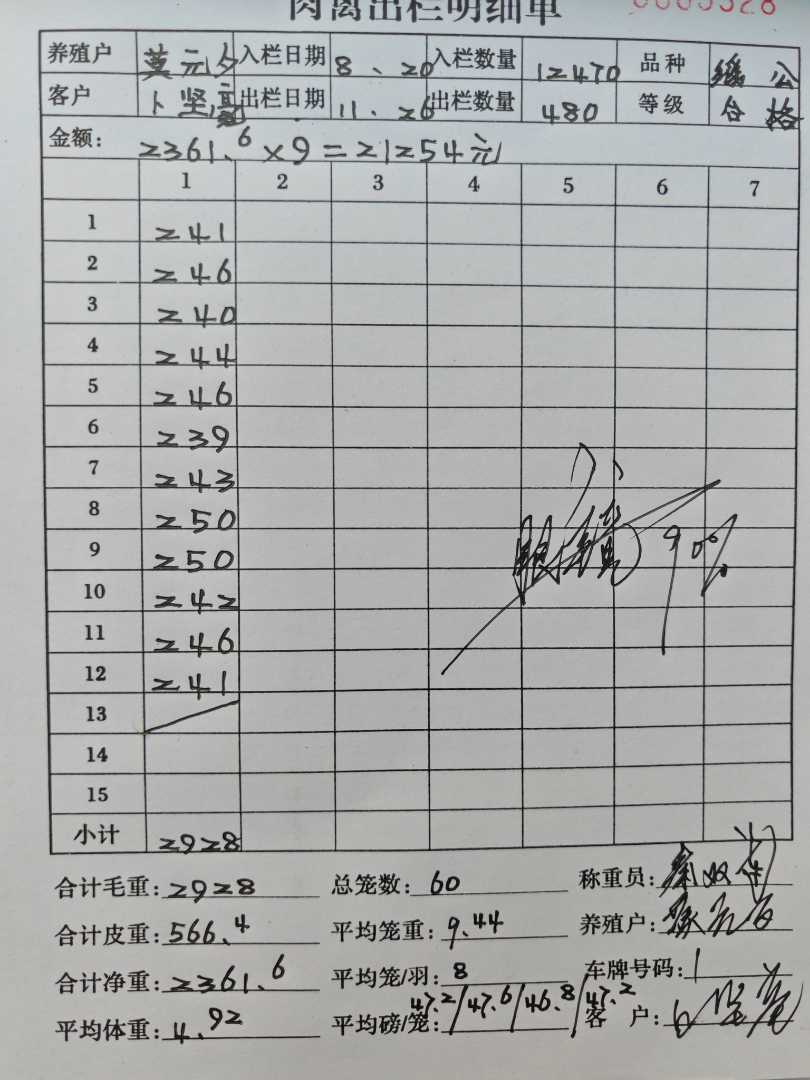 肉禽出栏明细单
养殖户 莫元 入栏日期 8、20 入栏数量 12470 品种 瑶公
客户 卜坚高 出栏日期 11、26 出栏数量 480 等级 合格
金额: 2361.6×9=21254元
1 2 3 4 5 6 7
1 241
2 246
3 240
4 244
5 246
6 239
7 243
8 250
9 250
10 242
11 246
12 241
13
14
15
小计 2928
90%
合计毛重: 2928 总笼数: 60 称重员:
合计皮重: 566.4 平均笼重: 9.44 养殖户:
合计净重: 2361.6 平均笼/羽: 8 车牌号码:
平均体重: 4.92 平均磅/笼: 47.2/47.6/46.8/47.2 客户: